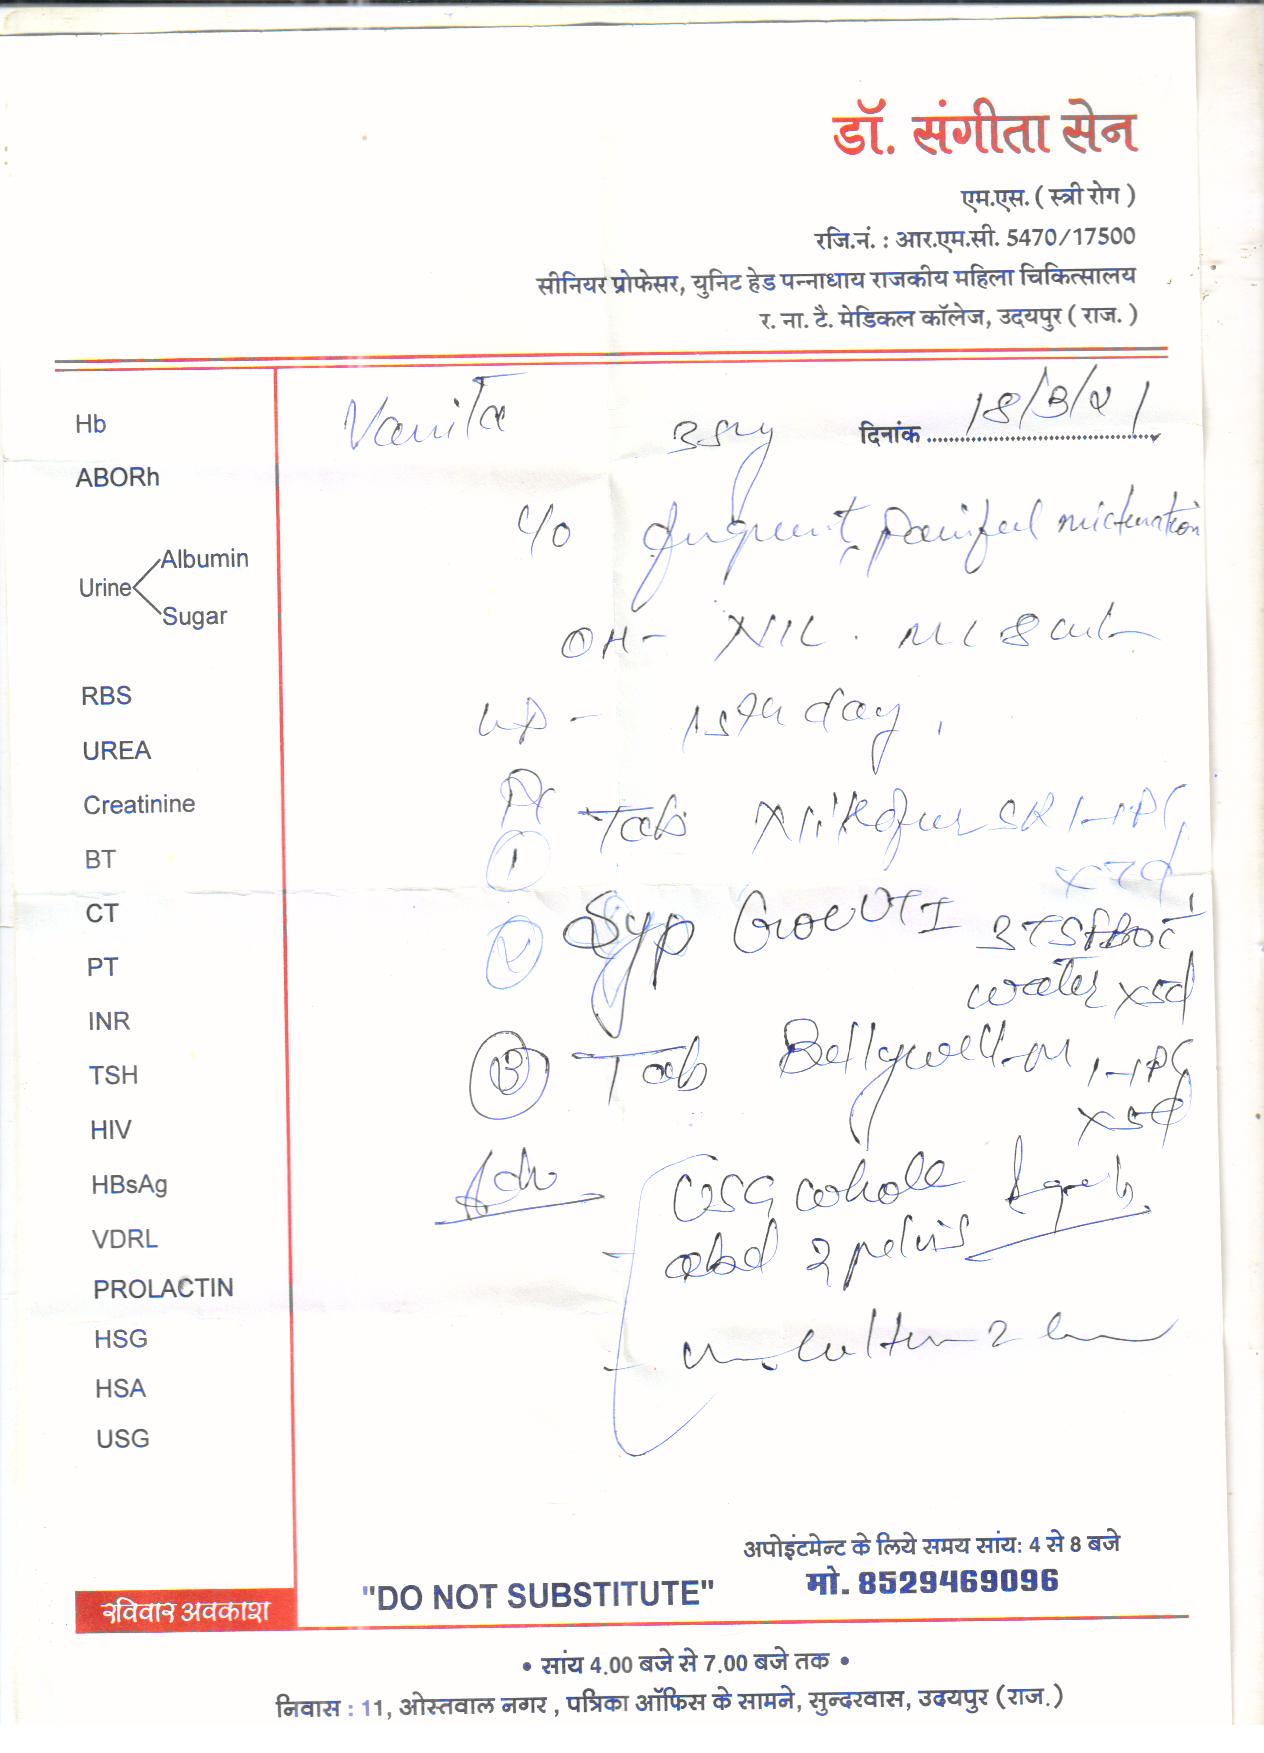 डॉ. संगीता सेन
एम.एस. ( स्त्री रोग )
रजि.नं. : आर.एम.सी. 5470/17500
सीनियर प्रोफेसर, युनिट हेड पन्नाधाय राजकीय महिला चिकित्सालय
र. ना. टै. मेडिकल कॉलेज, उदयपुर ( राज. )
Hb
ABORh
Urine
Albumin
Sugar
RBS
UREA
Creatinine
BT
CT
PT
INR
TSH
HIV
HBsAg
VDRL
PROLACTIN
HSG
HSA
USG
Vanita
दिनांक 18/3/21
C/O frequent, painful micturation
OH - NIL.
day,
1 Tab SR 1-1PC
x7d
2 Syp 3TSF BD C 1
water x5d
3 Tab Bellywell-M 1-1PC
x5d
Adv USG whole
abd 2 pelvis
"DO NOT SUBSTITUTE"
अपोइंटमेन्ट के लिये समय सांय: 4 से 8 बजे
मो. 8529469096
रविवार अवकाश
• सांय 4.00 बजे से 7.00 बजे तक •
निवास : 11, ओस्तवाल नगर , पत्रिका ऑफिस के सामने, सुन्दरवास, उदयपुर (राज.)